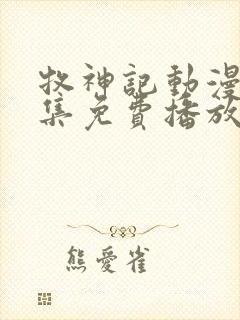 牧神記動漫
集免費播放
熊愛雀